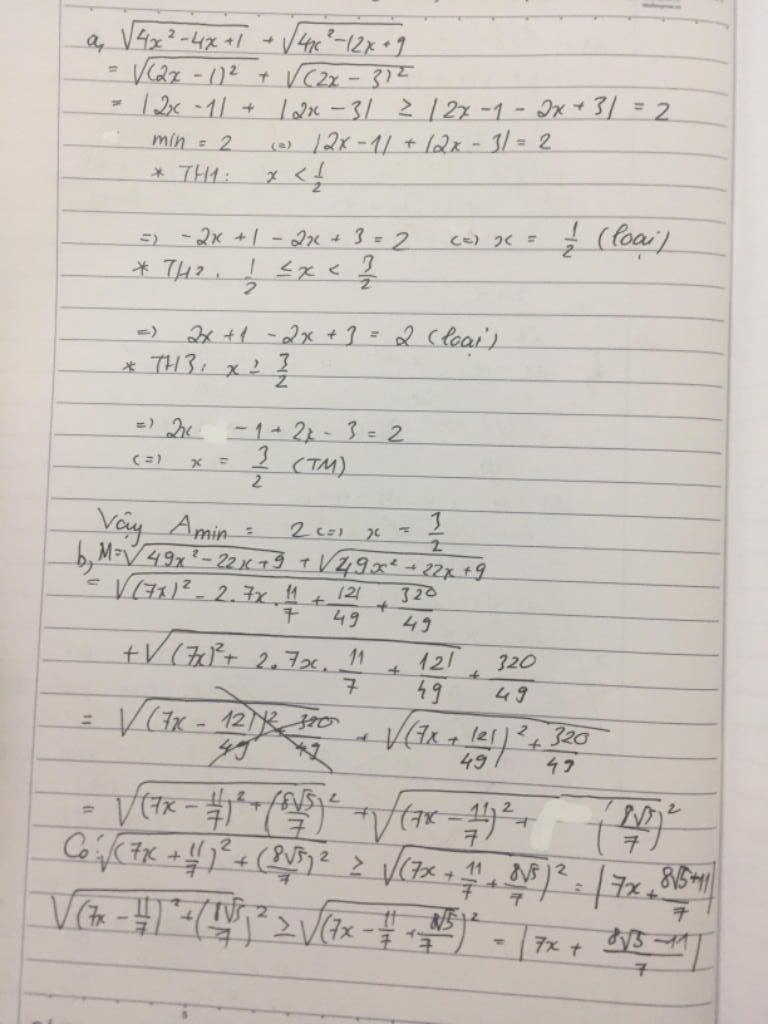 a, √(4x² - 4x + 1) + √(4x² - 12x + 9)
= √((2x - 1)²) + √((2x - 3)²)
= |2x - 1| + |2x - 3| ≥ |2x - 1 - 2x + 3| = 2
min = 2 <=> |2x - 1| + |2x - 3| = 2
* TH1: x < 1/2
=> -2x + 1 - 2x + 3 = 2 <=> x = 1/2 (loại)
* TH2: 1/2 ≤ x < 3/2
=> 2x + 1 - 2x + 3 = 2 (loại)
* TH3: x ≥ 3/2
=> 2x - 1 + 2x - 3 = 2
<=> x = 3/2 (TM)
Vậy Amin = 2 <=> x = 3/2
b, M = √(49x² - 22x + 9) + √(49x² + 22x + 9)
= √((7x)² - 2.7x.11/7 + 121/49 + 320/49)
+ √((7x)² + 2.7x.11/7 + 121/49 + 320/49)
= √((7x - 121/49)² 320/49) + √((7x + 121/49)² + 320/49)
= √((7x - 11/7)² + (8√5/7)²) + √((7x - 11/7)² + (8√5/7)²)
Có: √((7x + 11/7)² + (8√5/7)²) ≥ √((7x + 11/7 + 8√5/7)²) = |7x + (8√5 + 11)/7|
√((7x - 11/7)² + (8√5/7)²) ≥ √((7x - 11/7 + 8√5/7)²) = |7x + (8√5 - 11)/7|